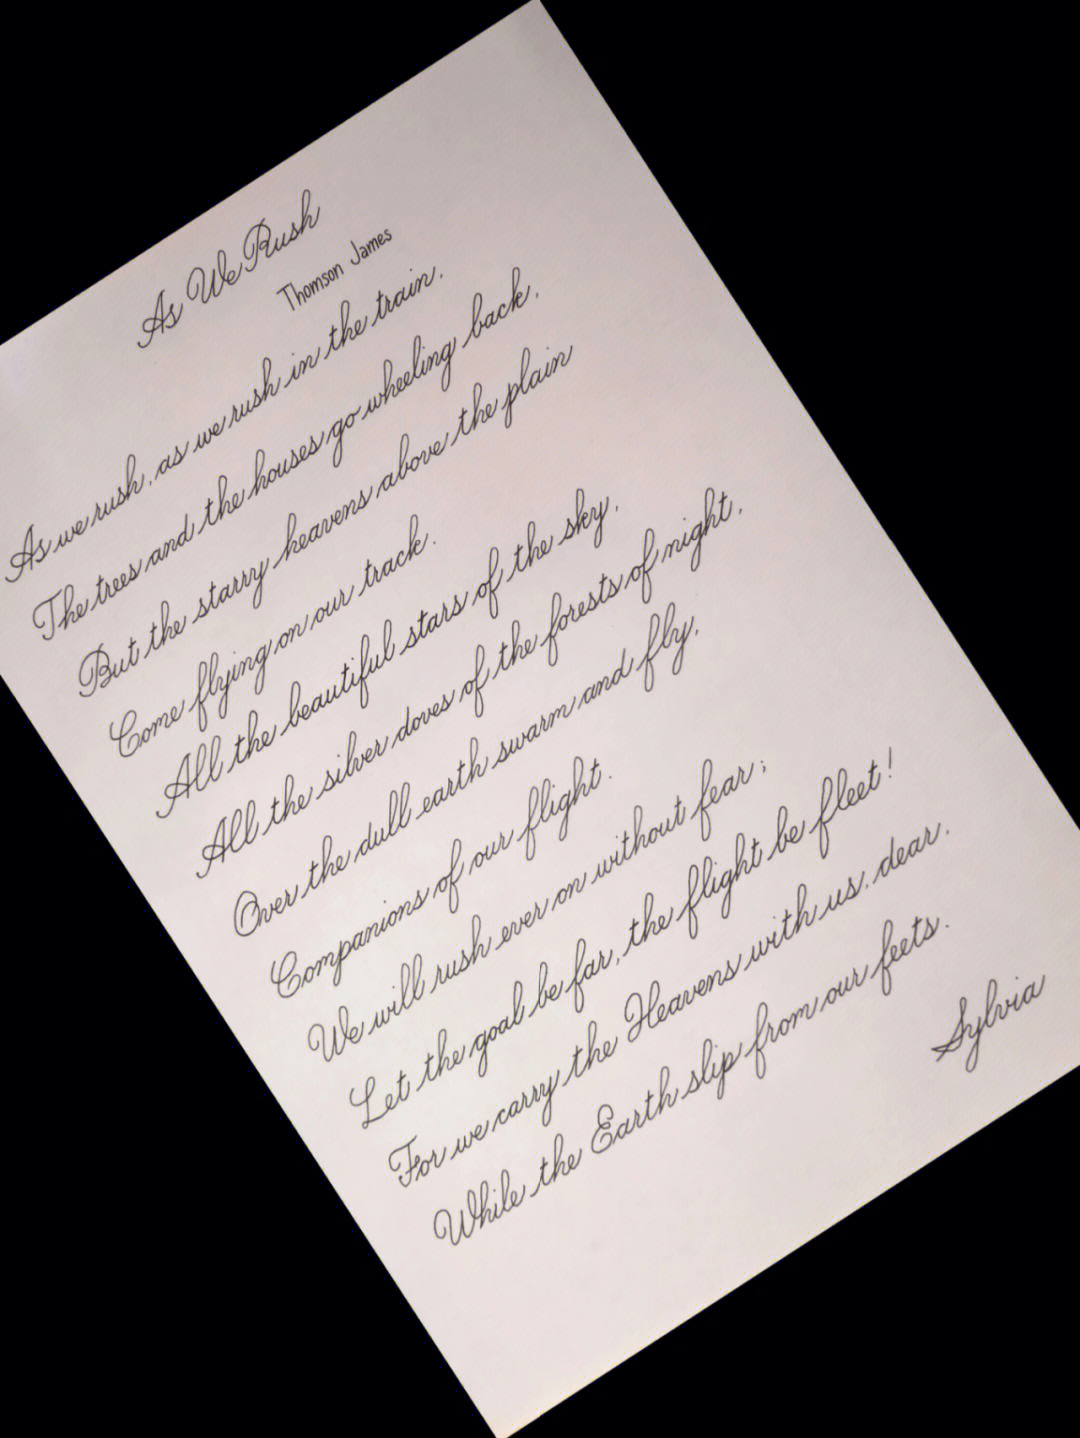 As We Rush
Thomson James
As we rush, as we rush in the train,
The trees and the houses go wheeling back,
But the starry heavens above the plain
Come flying on our track.
All the beautiful stars of the sky,
All the silver doves of the forests of night,
Over the dull earth swarm and fly,
Companions of our flight.
We will rush ever on without fear;
Let the goal be far, the flight be fleet!
For we carry the Heavens with us, dear,
While the Earth slip from our feets.
Sylvia